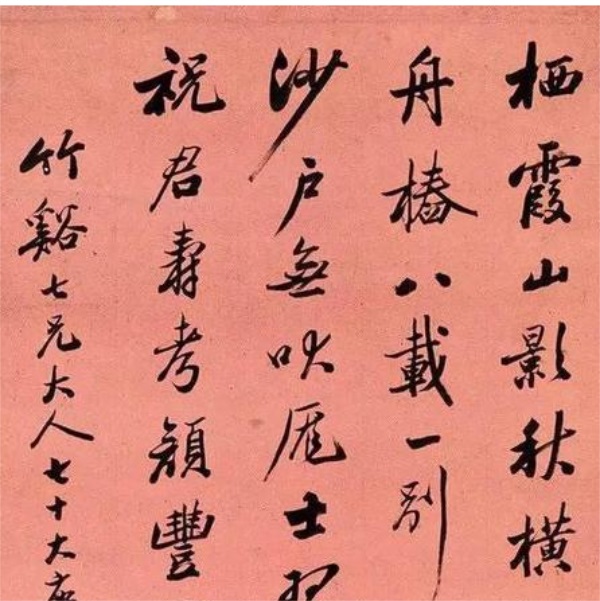 栖霞山影秋橫
舟樁八載一別
沙戶無吠厖士
祝君壽考顏豐
竹谿七兄大人七十大